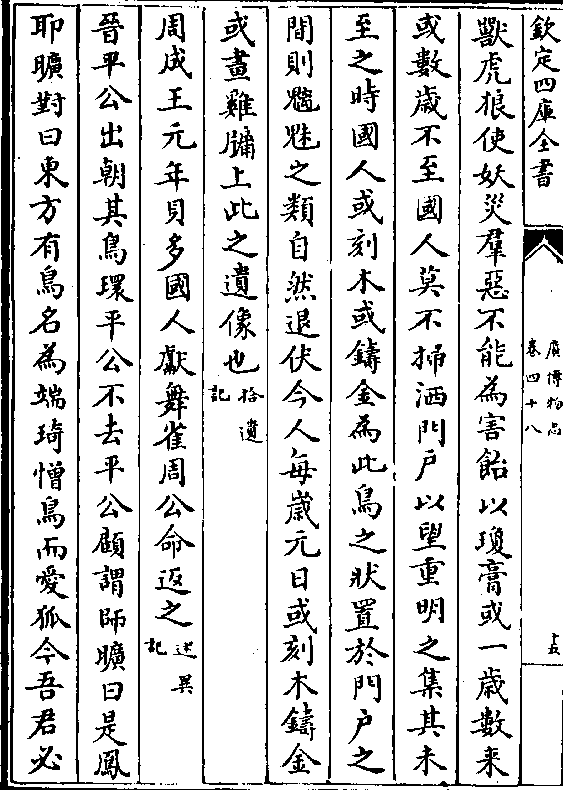 欽定四庫全書
廣博物志
卷四十八
獸虎狼使妖災羣惡不能為害飴以瓊膏或一歲數来
或數歲不至國人莫不掃洒門户以望重明之集其未
至之時國人或刻木或鑄金為此鳥之狀置於門户之
間則魑魅之類自然退伏今人每歲元日或刻木鑄金
或畫雞牖上此之遺像也拾遺記
周成王元年貝多國人獻舞雀周公命返之述異記
晉平公出朝其鳥環平公不去平公顧謂師曠曰是鳳
耶曠對曰東方有鳥名為端琦憎鳥而愛狐今吾君必